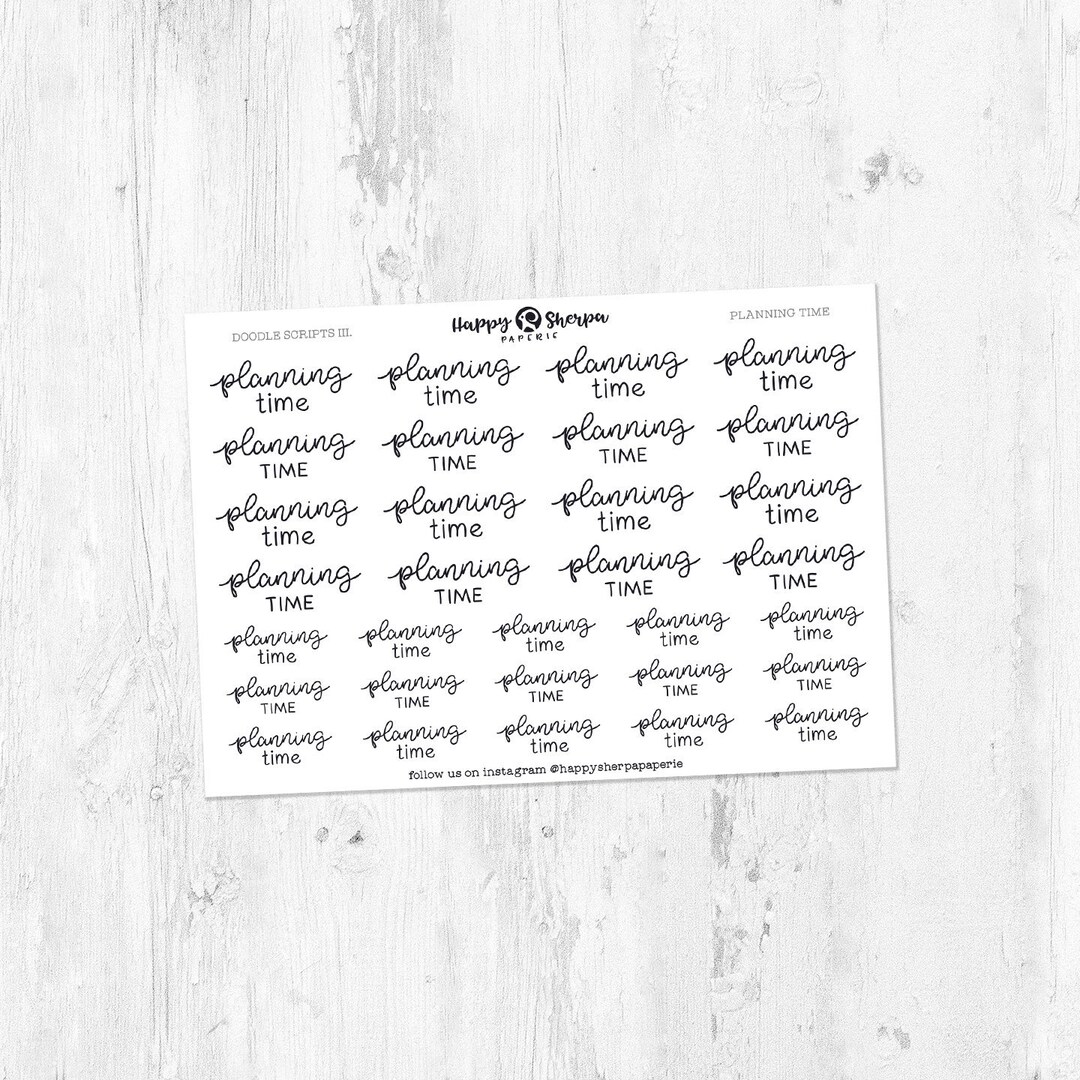 DOODLE SCRIPTS III. Happy Sherpa PLANNING TIME
PAPERIE
planning planning planning planning
time time time time
planning planning planning planning
TIME TIME TIME TIME
planning planning planning planning
time time time time
planning planning planning planning
TIME TIME TIME TIME
planning planning planning planning planning
time time time time time
planning planning planning planning planning
TIME TIME TIME TIME TIME
planning planning planning planning planning
time time time time time
follow us on instagram @happysherpapaperie